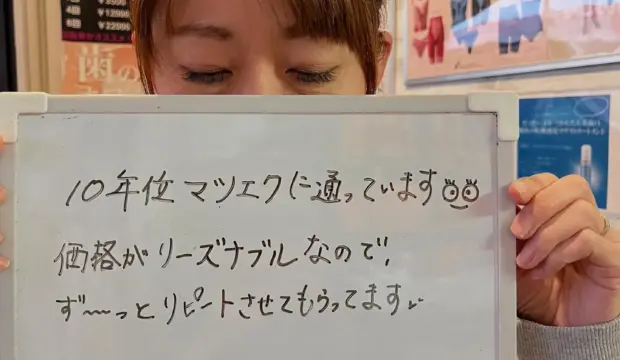 ¥12995
歯の
10年位 マツエクに通っています
価格がリーズナブルなので、
ず〜っとリピートさせてもらってます